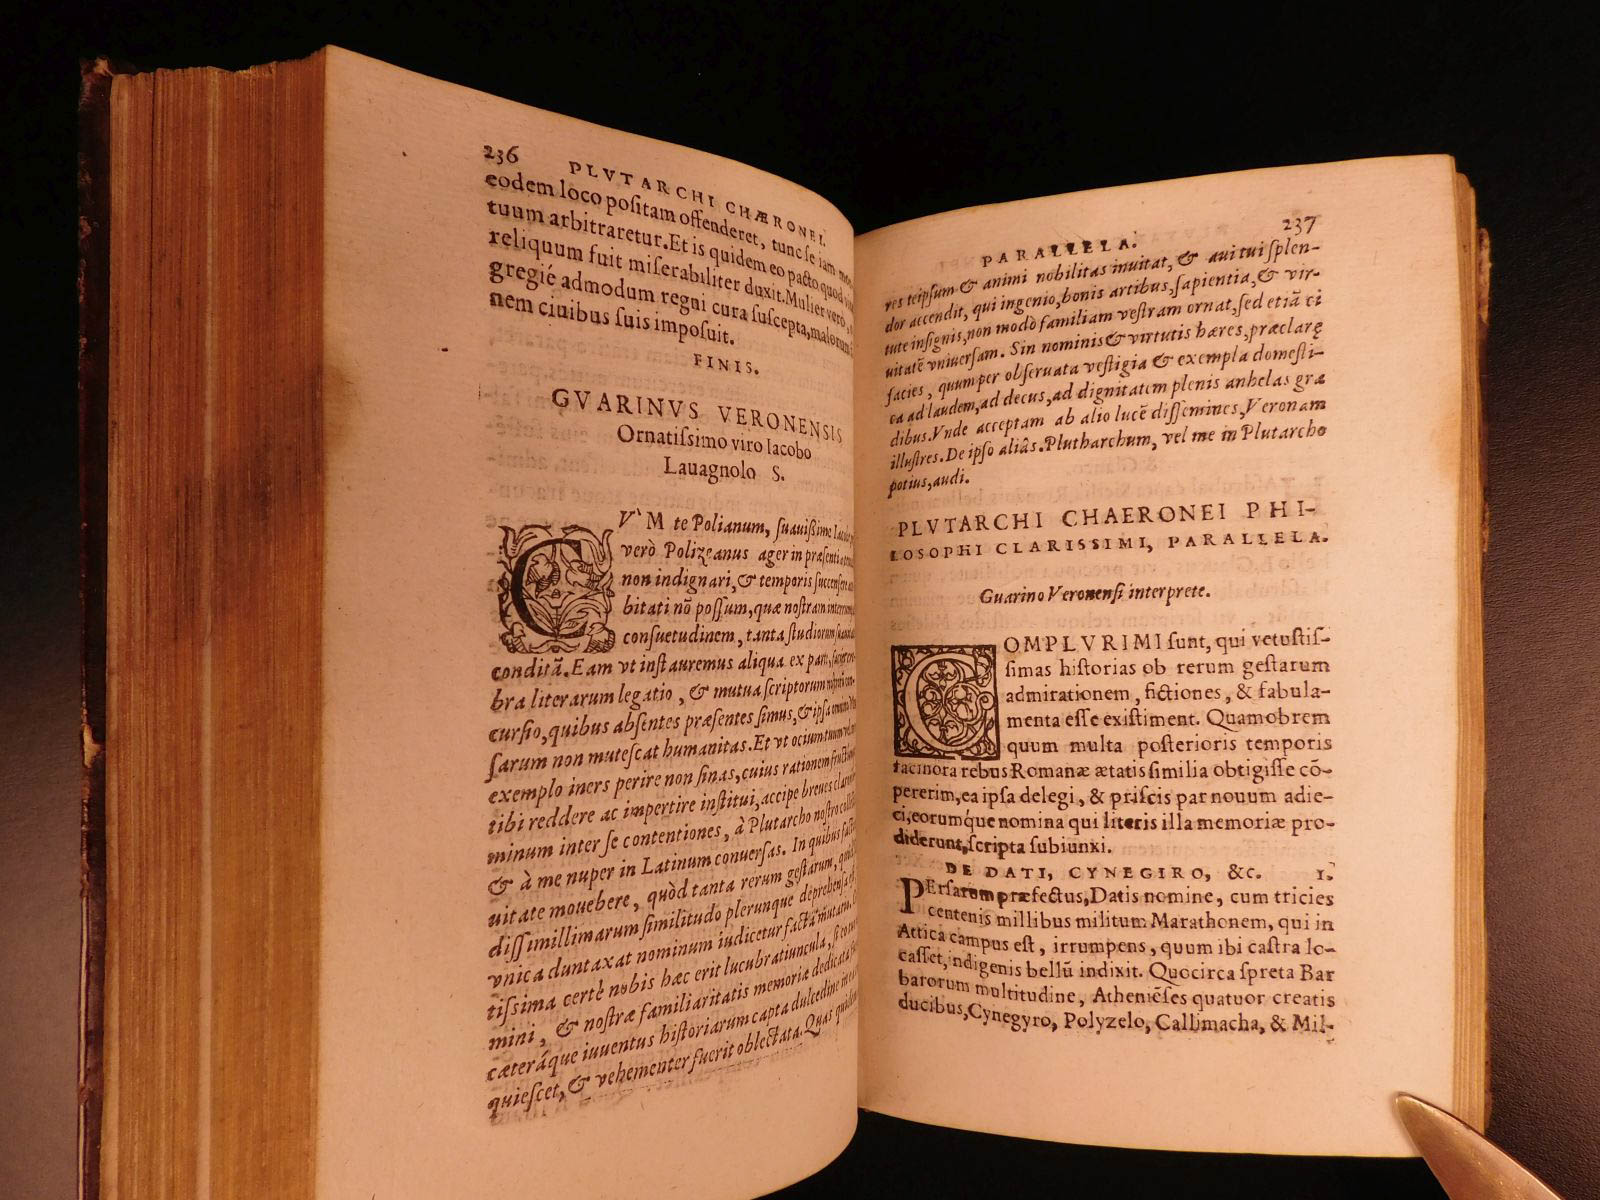 236
PLVTARCHI CHÆRONEI.
eodem loco positam offenderet, tunc se iam
tuum arbitraretur. Et is quidem eo pacto quod
reliquum fuit miserabiliter duxit. Mulier vero,
gregié admodum regni cura suscepta, malorum
nem ciuibus suis imposuit.
FINIS.
GVARINVS VERONENSIS
Ornatissimo viro Iacobo
Lauagnolo S.
CV`M te Polianum, suauissime
verò Polizeanus ager in præsenti
non indignari, & temporis succensere
bitati nõ possum, quæ nostram
consuetudinem, tanta studiorum
conditã. Eam vt instauremus aliqua ex parte,
bra literarum legatio, & mutua scriptorum
cursio, quibus absentes præsentes simus, & ipsa
sarum non mutescat humanitas. Et vt ocium tuum vel
exemplo iners perire non sinas, cuius rationem
tibi reddere ac impertire institui, accipe breues
minum inter se contentiones, à Plutarcho nostro
& à me nuper in Latinum conuersas. In quibus
uitate mouebere, quòd tanta rerum gestarum,
dissimillimarum similitudo plerunque deprehensa
vnica duntaxat nominum iudicetur facta mutatio.
tissima certè nobis hæc erit lucubratiuncula, si
mini, & nostræ familiaritatis memoriæ dedicata
cæteráque iuuentus historiarum capta dulcedine
quiescet, & vehementer fuerit oblectata. Quas quidem
PARALLELA. 237
res teipsum & animi nobilitas inuitat, & aui tui splen-
dor accendit, qui ingenio, bonis artibus, sapientia, & vir-
tute insignis, non modò familiam vestram ornat, sed etiã ci
uitatẽ vniuersam. Sin nominis & virtutis hæres, præclarę
facies, quum per obseruata vestigia & exempla domesti-
ca ad laudem, ad decus, ad dignitatem plenis anhelas gra
dibus. Vnde acceptam ab alio lucẽ dissemines, Veronam
illustres. De ipso aliâs. Plutharchum, vel me in Plutarcho
potius, audi.
PLVTARCHI CHAERONEI PHI-
LOSOPHI CLARISSIMI, PARALLELA.
Guarino Veronensi interprete.
COMPLVRIMI sunt, qui vetustis-
simas historias ob rerum gestarum
admirationem, fictiones, & fabula-
menta esse existiment. Quamobrem
quum multa posterioris temporis
facinora rebus Romanæ ætatis similia obtigisse cõ-
pererim, ea ipsa delegi, & priscis par nouum adie-
ci, eorumq́ue nomina qui literis illa memoriæ pro-
diderunt, scripta subiunxi.
DE DATI, CYNEGIRO, &c. 1.
PErsarum præfectus, Datis nomine, cum tricies
centenis millibus militum Marathonem, qui in
Attica campus est, irrumpens, quum ibi castra lo-
casset, indigenis bellũ indixit. Quocirca spreta Bar
barorum multitudine, Atheniẽses quatuor creatis
ducibus, Cynegyro, Polyzelo, Callimacha, & Mil-